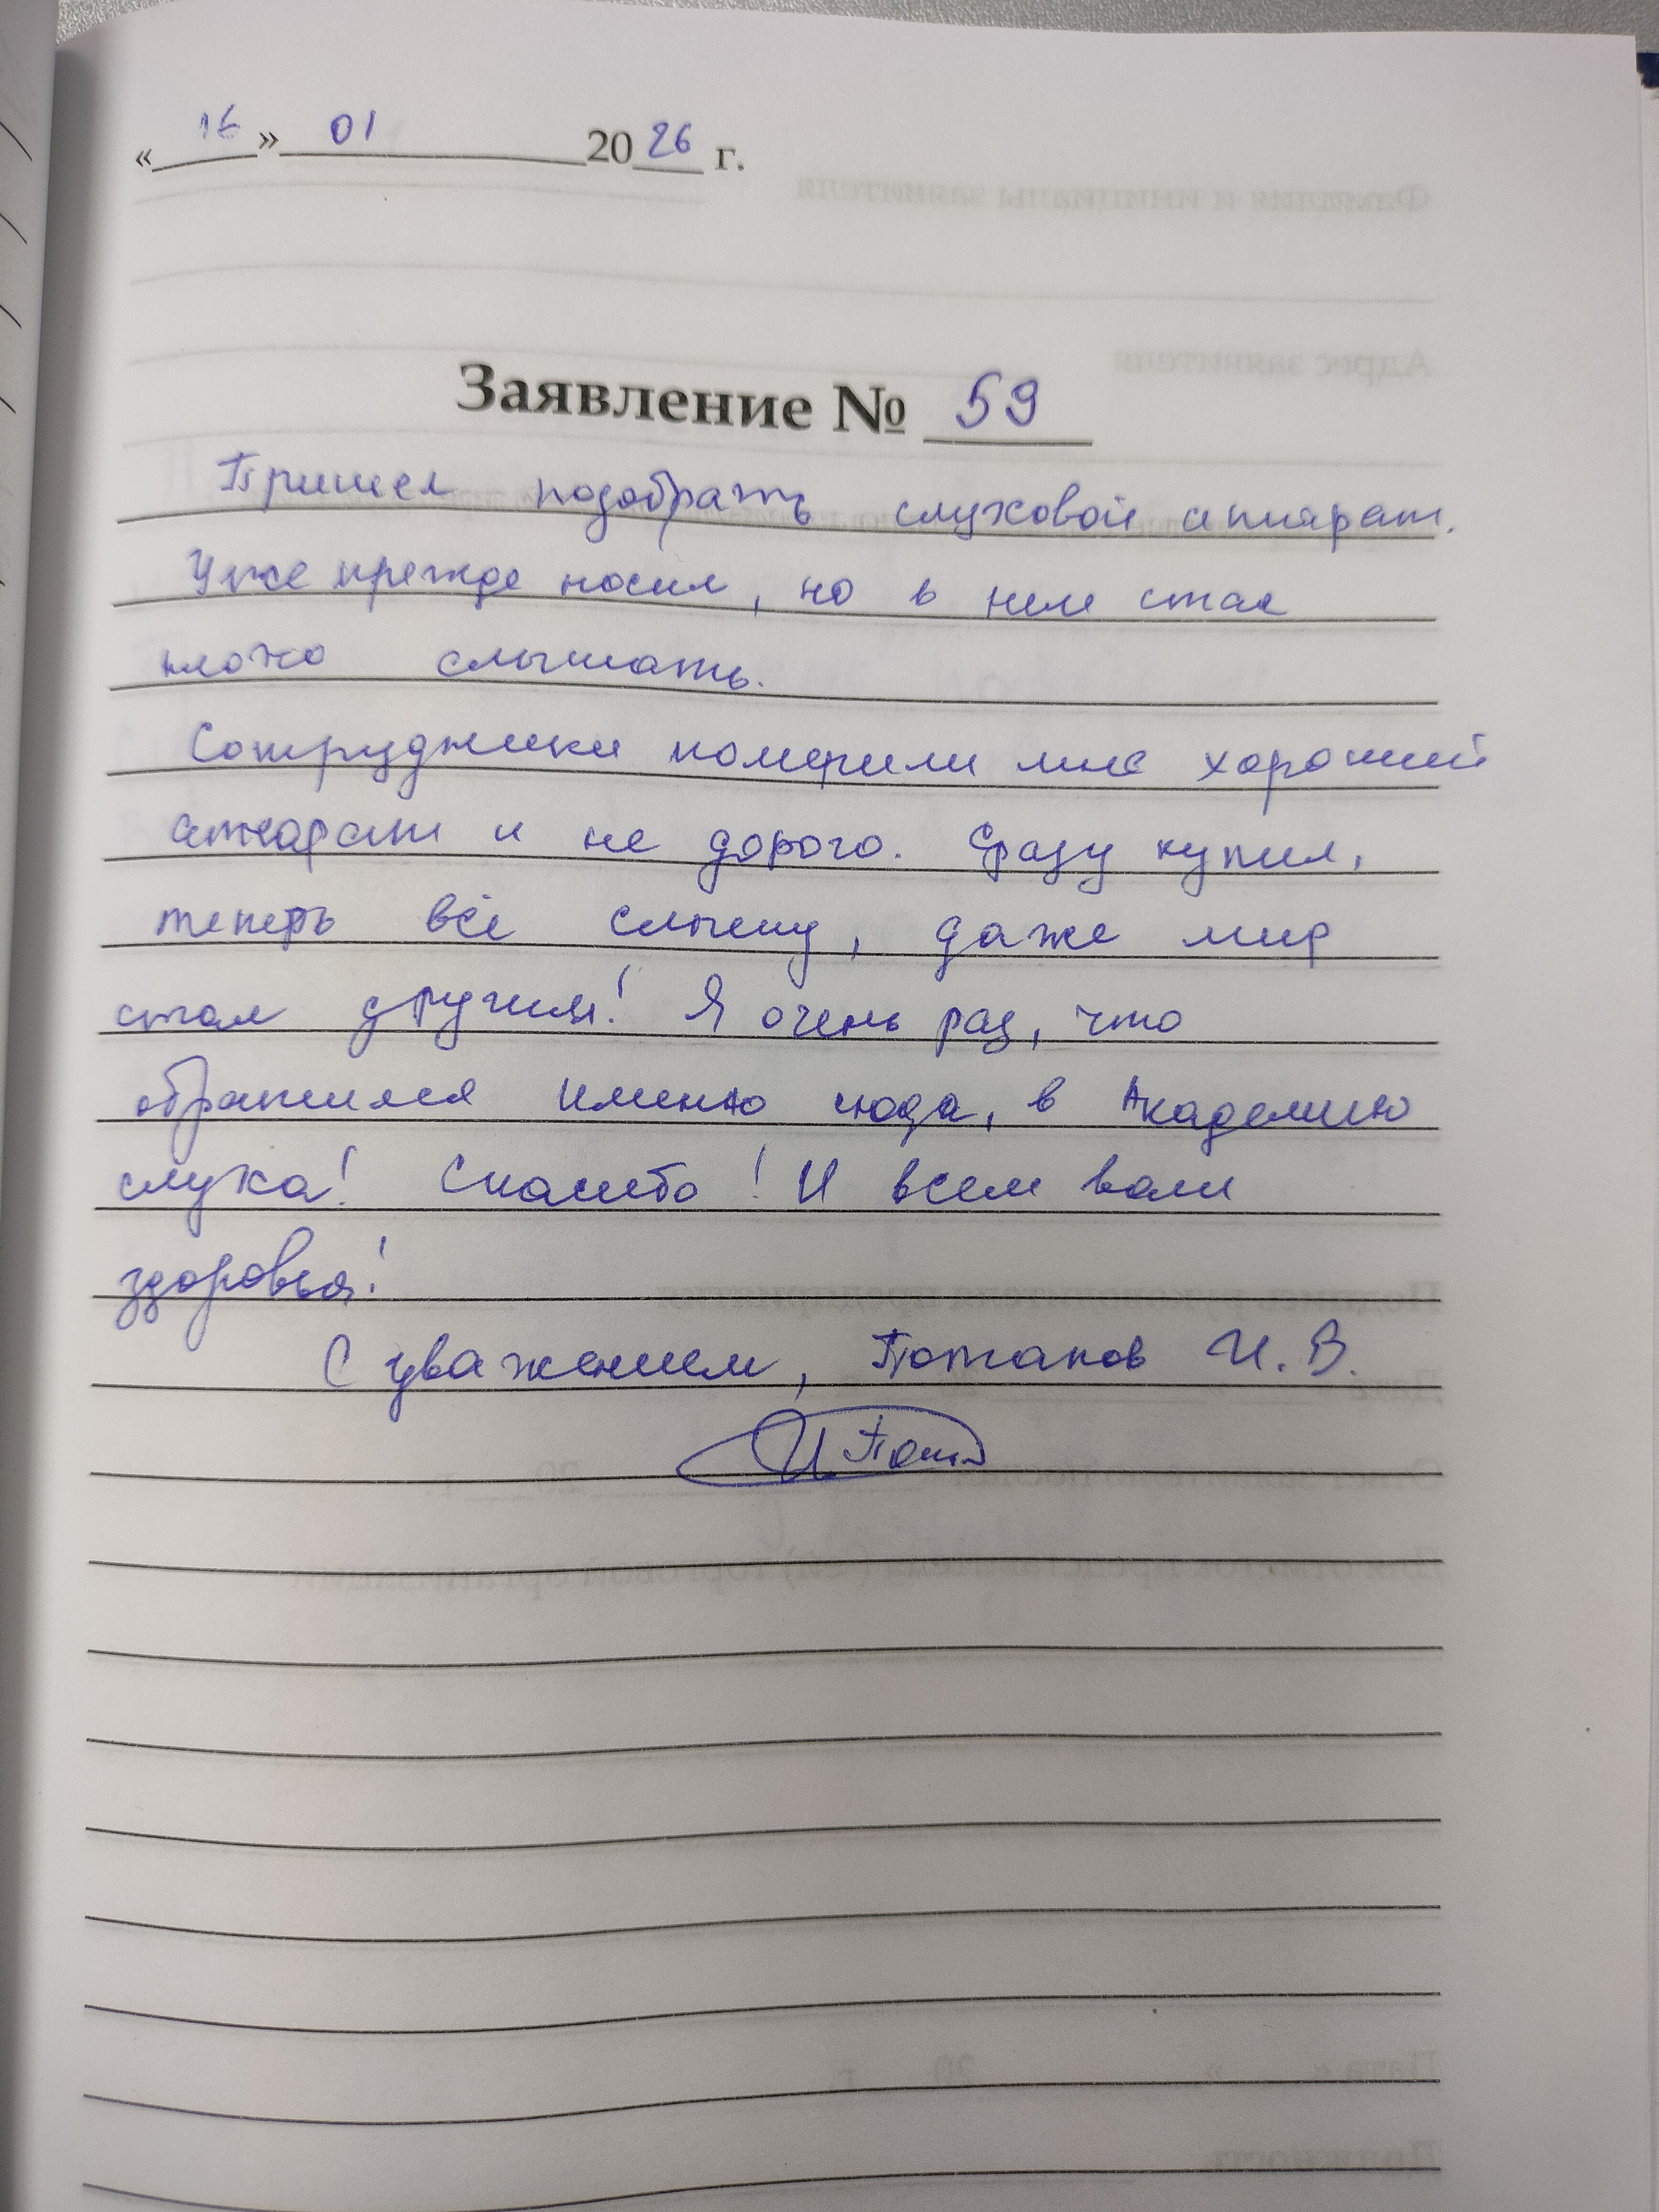 «16» 01 2026 г.
Заявление № 59
Пришел подобрать слуховой аппарат.
Уже прежде носил, но в нем стал
плохо слышать.
Сотрудники померили мне хороший
аппарат и не дорого. Сразу купил,
теперь всё слышу, даже мир
стал другим! Я очень рад, что
обратился именно сюда, в Академию
слуха! Спасибо! И всем вам
здоровья!
С уважением, Потапов И. В.